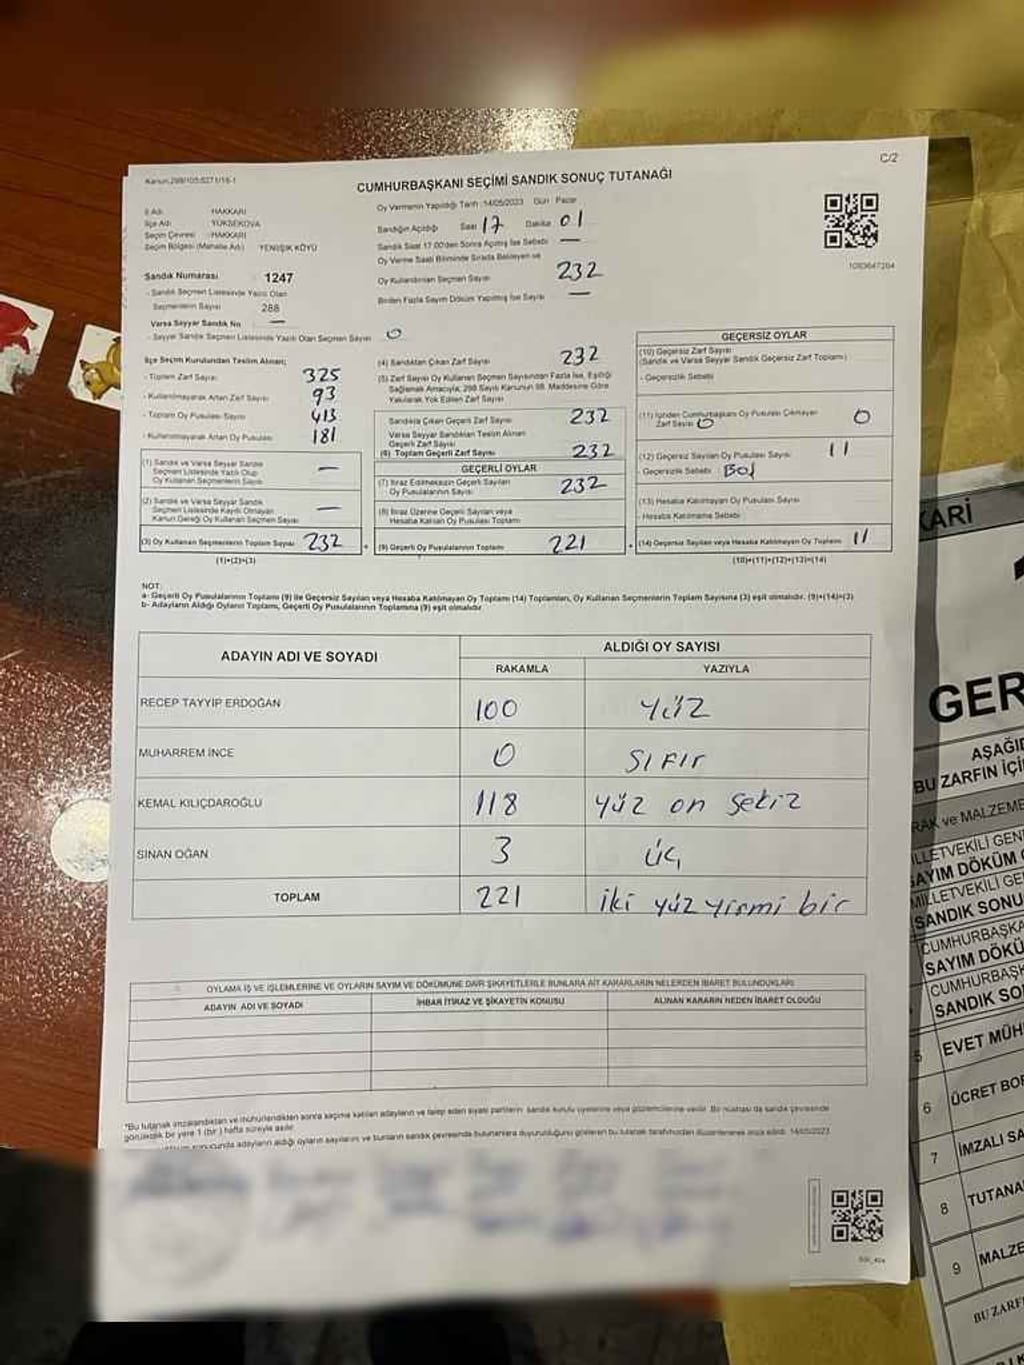 C/2
Kanun:298/103;6271/16-1
CUMHURBAŞKANI SEÇİMİ SANDIK SONUÇ TUTANAĞI
İl Adı HAKKARİ
İlçe Adı YÜKSEKOVA
Seçim Çevresi HAKKARİ
Seçim Bölgesi (Mahalle Adı) YENİIŞIK KÖYÜ
Sandık Numarası 1247
- Sandık Seçmen Listesinde Yazılı Olan
Seçmenlerin Sayısı 288
Varsa Seyyar Sandık No —
- Seyyar Sandık Seçmen Listesinde Yazılı Olan Seçmen Sayısı 0
Oy Vermenin Yapıldığı Tarih :14/05/2023 Gün Pazar
Sandığın Açıldığı Saat 17 Dakika 01
Sandık Saat 17.00'den Sonra Açılmış İse Sebebi —
Oy Verme Saati Bitiminde Sırada Bekleyen ve
Oy Kullandırılan Seçmen Sayısı 232
Birden Fazla Sayım Döküm Yapılmış İse Sayısı —
1093647204
İlçe Seçim Kurulundan Teslim Alınan;
- Toplam Zarf Sayısı 325
- Kullanılmayarak Artan Zarf Sayısı 93
- Toplam Oy Pusulası Sayısı 413
- Kullanılmayarak Artan Oy Pusulası 181
(1) Sandık ve Varsa Seyyar Sandık
Seçmen Listesinde Yazılı Olup
Oy Kullanan Seçmenlerin Sayısı —
(2) Sandık ve Varsa Seyyar Sandık
Seçmen Listesinde Kayıtlı Olmayan
Kanun Gereği Oy Kullanan Seçmen Sayısı —
(3) Oy Kullanan Seçmenlerin Toplam Sayısı 232
(1)+(2)=(3)
(4) Sandıktan Çıkan Zarf Sayısı 232
(5) Zarf Sayısı Oy Kullanan Seçmen Sayısından Fazla İse, Eşitliği
Sağlamak Amacıyla; 298 Sayılı Kanunun 98. Maddesine Göre
Yakılarak Yok Edilen Zarf Sayısı
Sandıkta Çıkan Geçerli Zarf Sayısı 232
Varsa Seyyar Sandıktan Teslim Alınan
Geçerli Zarf Sayısı
(6) Toplam Geçerli Zarf Sayısı 232
GEÇERLİ OYLAR
(7) İtiraz Edilmeksizin Geçerli Sayılan
Oy Pusulalarının Sayısı 232
(8) İtiraz Üzerine Geçerli Sayılan veya
Hesaba Katılan Oy Pusulası Toplamı
(9) Geçerli Oy Pusulalarının Toplamı 221
GEÇERSİZ OYLAR
(10) Geçersiz Zarf Sayısı
(Sandık ve Varsa Seyyar Sandık Geçersiz Zarf Toplamı)
- Geçersizlik Sebebi
(11) İçinden Cumhurbaşkanı Oy Pusulası Çıkmayan
Zarf Sayısı 0 0
(12) Geçersiz Sayılan Oy Pusulası Sayısı 11
- Geçersizlik Sebebi : Boş
(13) Hesaba Katılmayan Oy Pusulası Sayısı
- Hesaba Katılmama Sebebi
(14) Geçersiz Sayılan veya Hesaba Katılmayan Oy Toplamı 11
(10)+(11)+(12)+(13)=(14)
NOT:
a- Geçerli Oy Pusulalarının Toplamı (9) ile Geçersiz Sayılan veya Hesaba Katılmayan Oy Toplamı (14) Toplamları, Oy Kullanan Seçmenlerin Toplam Sayısına (3) eşit olmalıdır. (9)+(14)=(3)
b- Adayların Aldığı Oyların Toplamı, Geçerli Oy Pusulalarının Toplamına (9) eşit olmalıdır.
ADAYIN ADI VE SOYADI ALDIĞI OY SAYISI
RAKAMLA YAZIYLA
RECEP TAYYİP ERDOĞAN 100 yüz
MUHARREM İNCE 0 sıfır
KEMAL KILIÇDAROĞLU 118 yüz on sekiz
SİNAN OĞAN 3 üç
TOPLAM 221 iki yüz yirmi bir
OYLAMA İŞ VE İŞLEMLERİNE VE OYLARIN SAYIM VE DÖKÜMÜNE DAİR ŞİKAYETLERLE BUNLARA AİT KARARLARIN NELERDEN İBARET BULUNDUKLARI
ADAYIN ADI VE SOYADI İHBAR İTİRAZ VE ŞİKAYETİN KONUSU ALINAN KARARIN NEDEN İBARET OLDUĞU
*Bu tutanak imzalandıktan ve mühürlendikten sonra seçime katılan adayların ve talep eden siyasi partilerin sandık kurulu üyelerine veya gözlemcilerine verilir. Bir nüshası da sandık çevresinde
görülebilir bir yere 1 (bir) hafta süreyle asılır.
sonucunda adayların aldığı oyların sayılarını ve bunların sandık çevresinde bulunanlara duyurulduğunu gösteren bu tutanak tarafımızdan düzenlenerek imza edildi. 14/05/2023
KARİ
GER
AŞAĞID
BU ZARFIN İÇİ
RAK ve MALZEME
İLLETVEKİLİ GENE
SAYIM DÖKÜM
MİLLETVEKİLİ GE
SANDIK SONU
CUMHURBAŞKA
SAYIM DÖKÜ
CUMHURBAŞK
SANDIK SO
5 EVET MÜH
6 ÜCRET BOR
7 İMZALI SA
8 TUTANA
9 MALZE
BU ZARFI